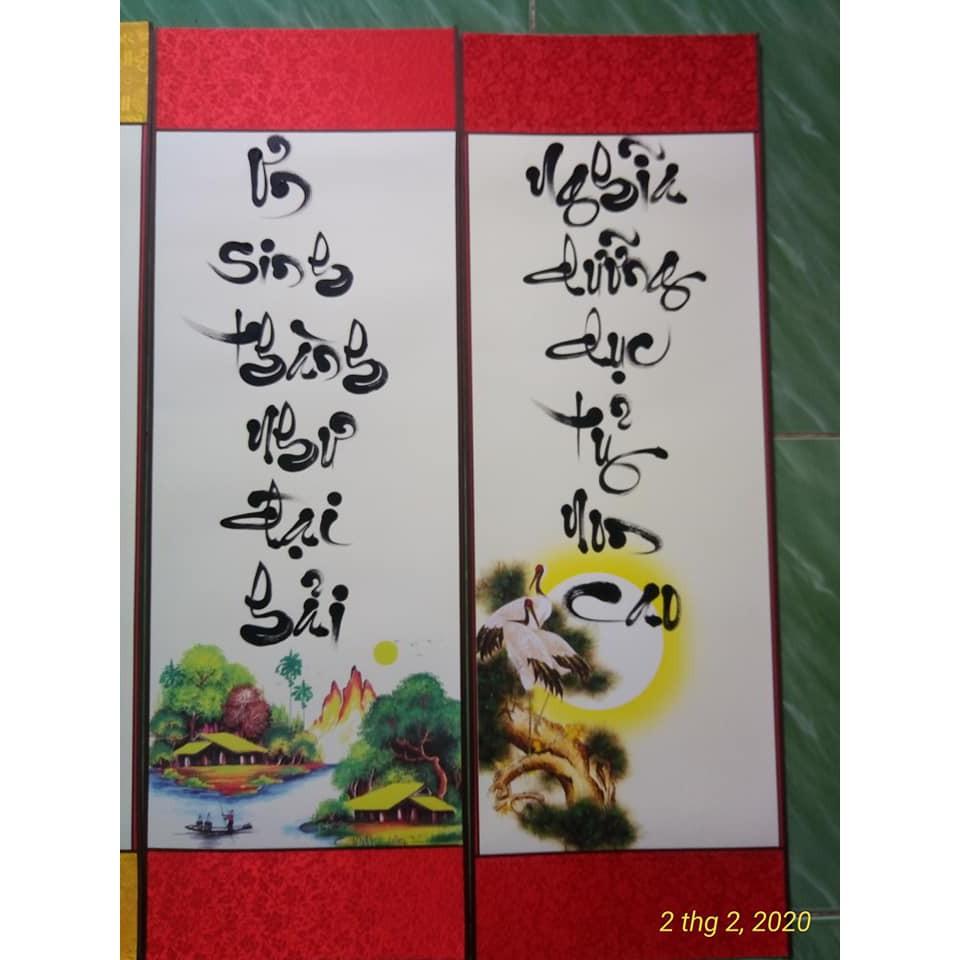 Ơn
Sinh
thành
như
đại
hải
Nghĩa
dưỡng
dục
tỷ
non
cao
2 thg 2, 2020